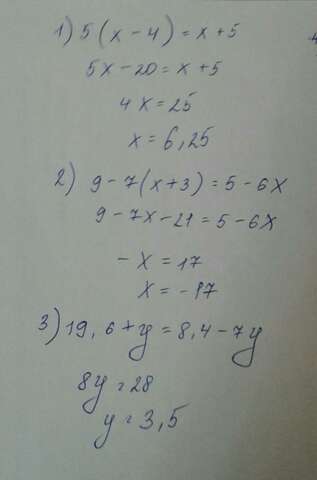 1) 5(x-4)=x+5
5x-20=x+5
4x=25
x=6,25
2) 9-7(x+3)=5-6x
9-7x-21=5-6x
-x=17
x=-17
3) 19,6+y=8,4-7y
8y=28
y=3,5